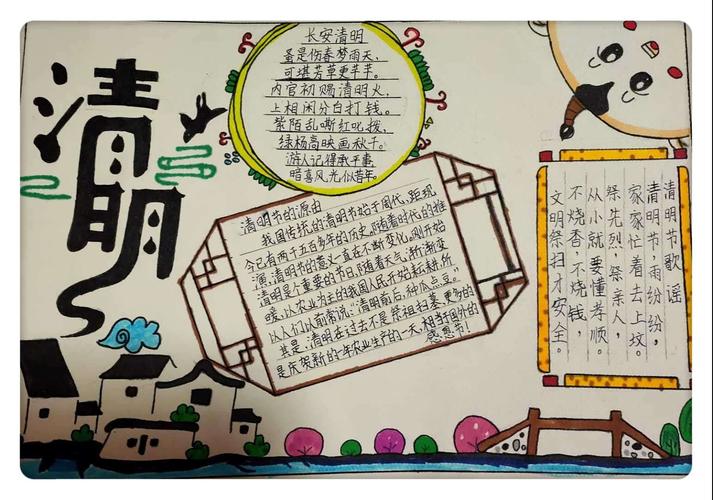 清明
长安清明
蚤是伤春梦雨天,
可堪芳草更芊芊。
内官初赐清明火,
上相闲分白打钱。
紫陌乱嘶红叱拨,
绿杨高映画秋千。
游人记得承平事,
暗喜风光似昔年。
清明节的源由
我国传统的清明节始于周代,距现
今已有两千五百多年的历史,随着时代的推
演,清明节的意义一直在不断变化。刚开始
清明是个重要的节日,随着天气,渐渐变
暖,以农业为主的我国人民开始耘耕,所
以人们以前常说:“清明前后,种瓜点豆。”
其是,清明在过去不是祭祖扫墓,更多的
是庆贺新的一年农业生产的一天,相当于国外的
感恩节!
清明节歌谣
清明节,雨纷纷,
家家忙着去上坟。
祭先烈,祭亲人,
从小就要懂孝顺。
不烧香,不烧钱,
文明祭扫才安全。